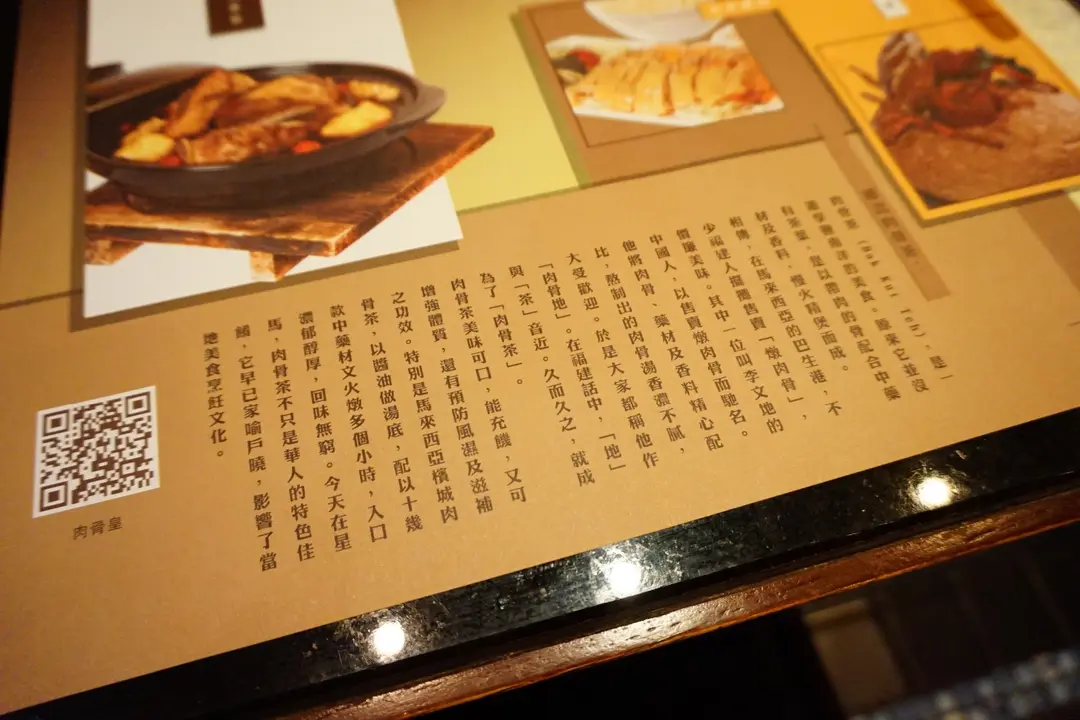 肉骨茶(Bak Kut Teh),是一
道享譽南洋的美食。原來它並沒
有茶葉,是以帶肉的骨配合中藥
材及香料,慢火精煲而成。
相傳,在馬來西亞的巴生港,不
少福建人擺攤售賣「燉肉骨」,
價廉美味。其中一位叫李文地的
中國人,以售賣燉肉骨而馳名。
他將肉骨、藥材及香料精心配
比,熬制出的肉骨湯香濃不膩,
大受歡迎。於是大家都稱他作
「肉骨地」。在福建話中,「地」
與「茶」音近。久而久之,就成
為了「肉骨茶」。
肉骨茶美味可口,能充饑,又可
增強體質,還有預防風濕及滋補
之功效。特別是馬來西亞檳城肉
骨茶,以醬油做湯底,配以十幾
款中藥材文火燉多個小時,入口
濃郁醇厚,回味無窮。今天在星
馬,肉骨茶不只是華人的特色佳
餚,它早已家喻戶曉,影響了當
地美食烹飪文化。
肉骨皇